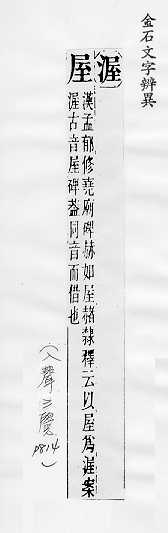 金石文字辨異
渥
屋
漢孟郁修堯廟碑赫如屋赭隸釋云以屋爲渥案
渥古音屋碑葢同音而借也
(入聲三覺
p814)